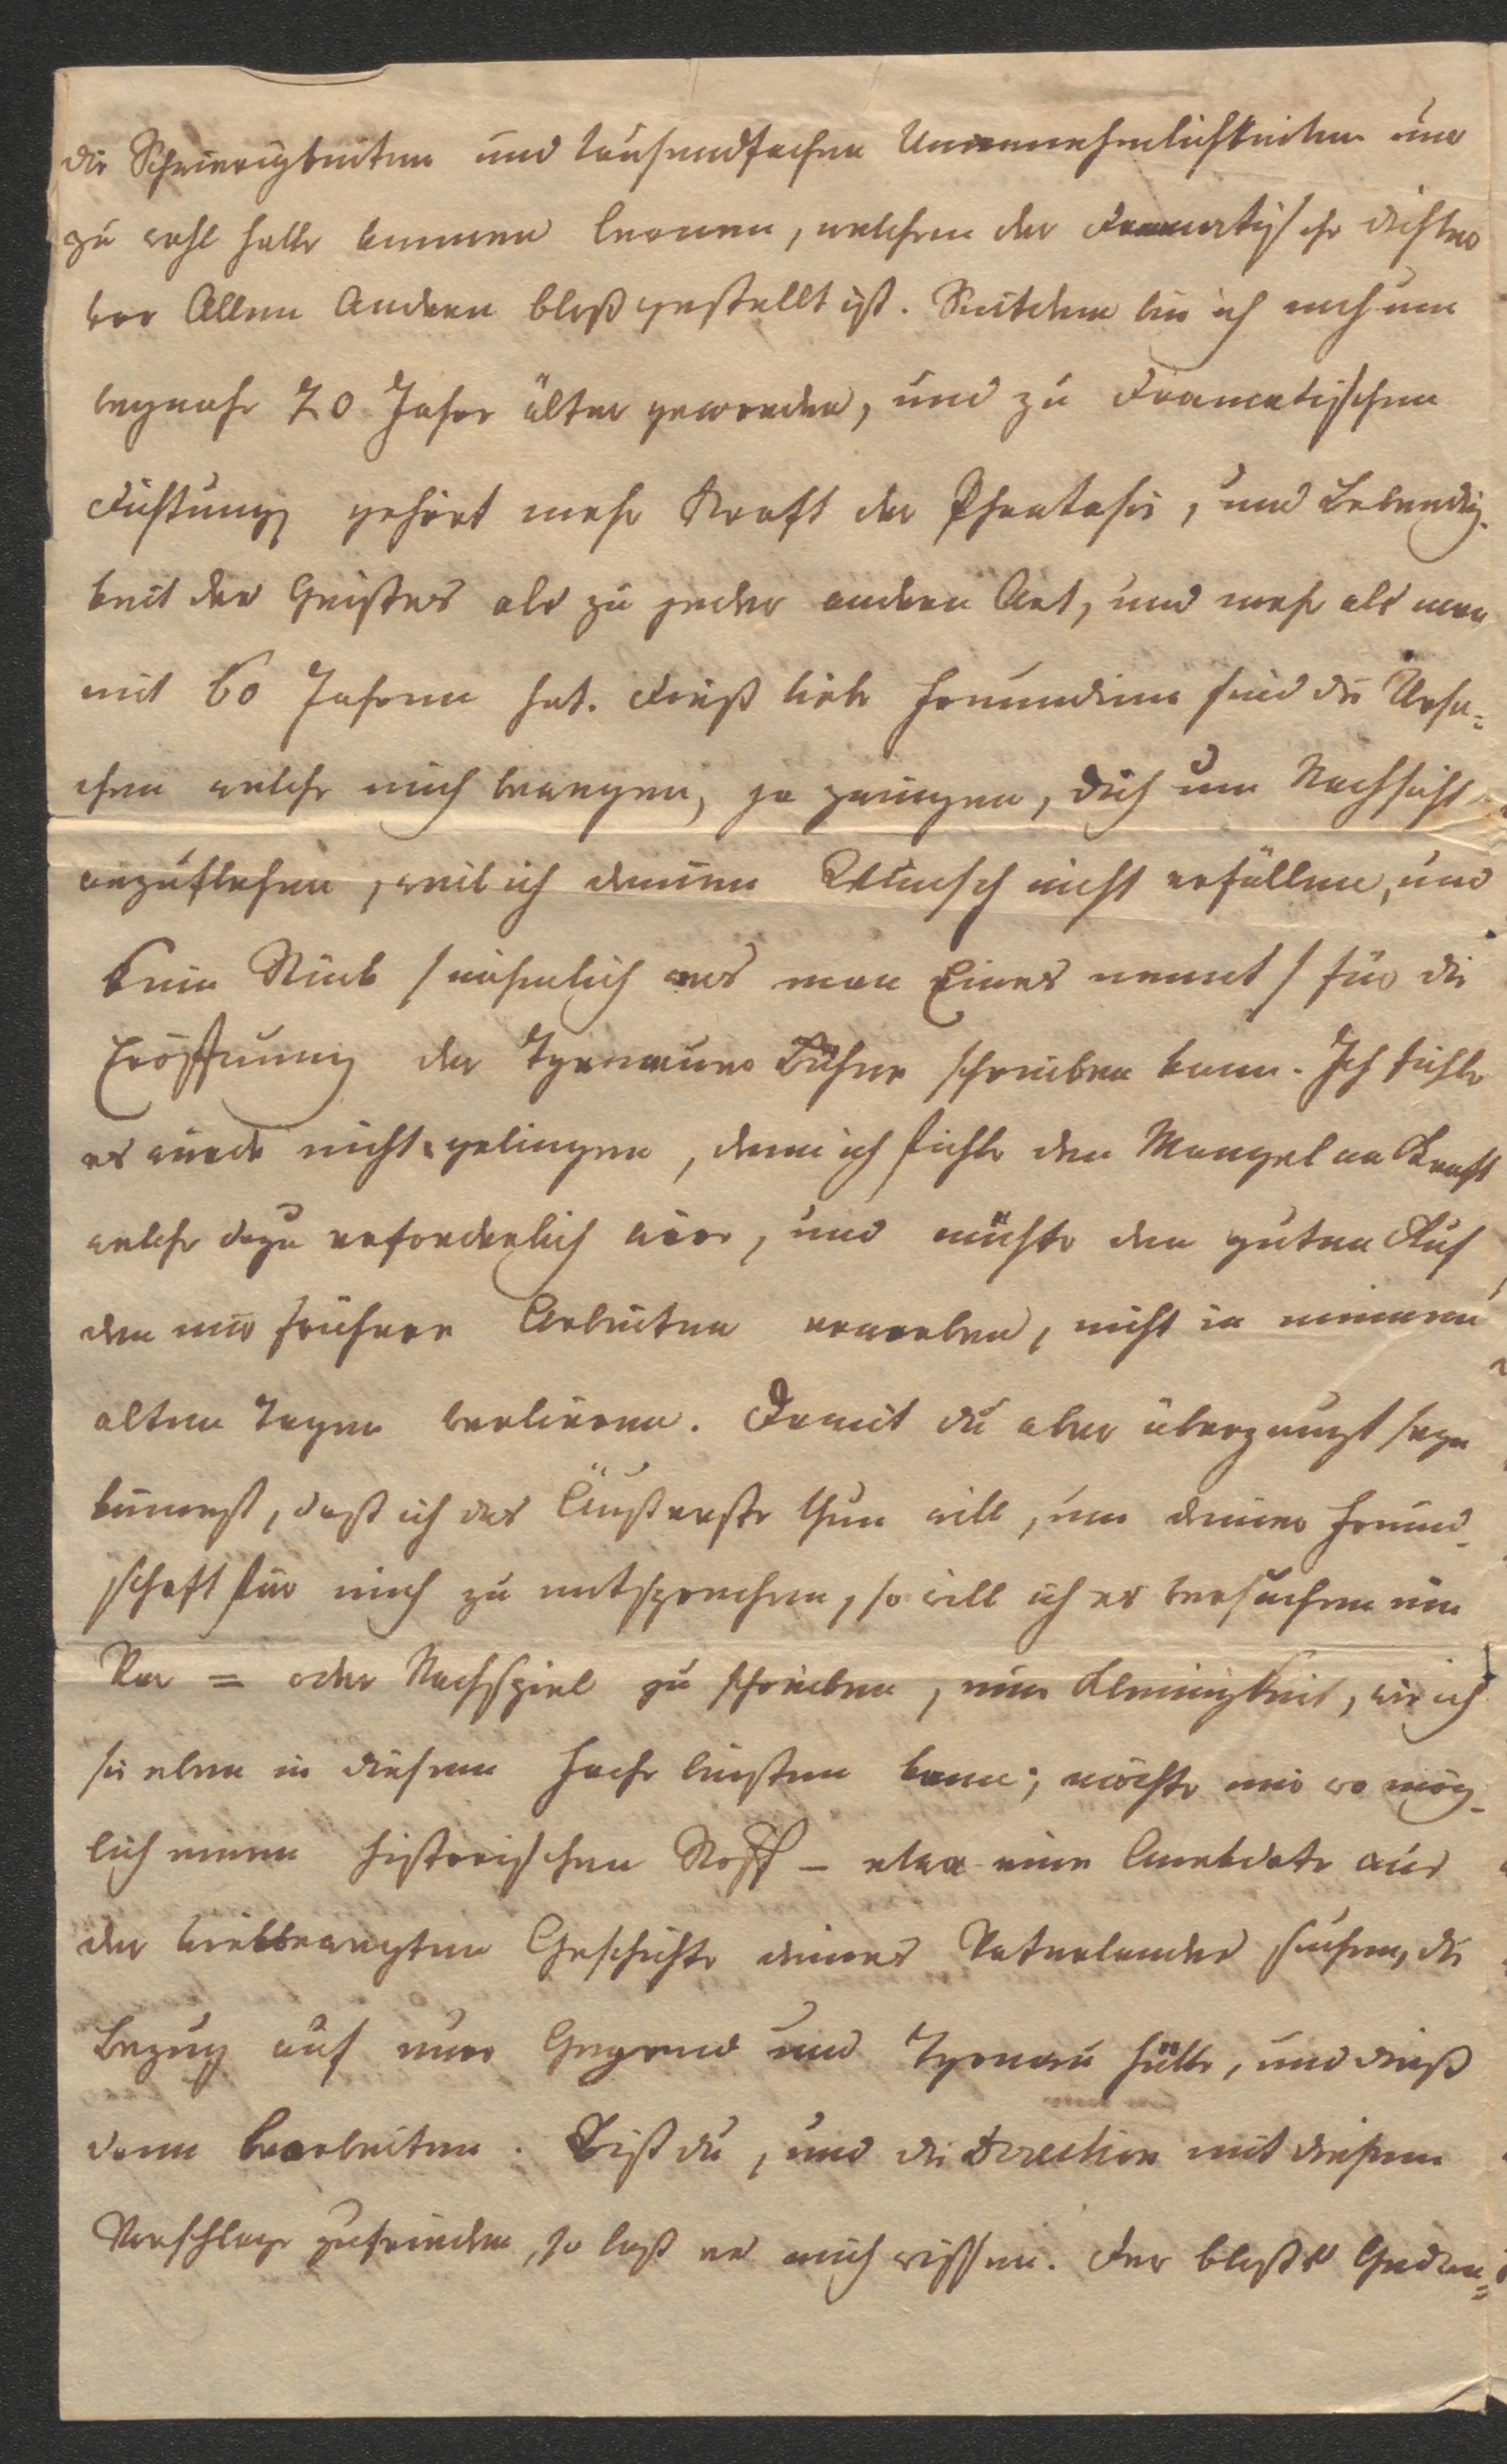 die Schwierigkeiten und tausendfachen Unannehmlichkeiten nur
zu wohl hatte kennen lernen, welchen der dramatische Dichter
vor Allen Andern bloßgestellt ist. Seitdem bin ich noch um
beynahe 20 Jahre älter geworden, und zu dramatischen
Dichtung gehört mehr Kraft der Phantasie, und Lebendig-
keit des Geistes als zu jeder andern Art, und mehr als man
mit 60 Jahren hat. Dieß liebe Freundinn sind die Ursa=
chen welche mich bewegen, ja zwingen, dich um Nachsicht
anzuflehen, weil ich deinen Wunsch nicht erfüllen, und
kein Stück / nähmlich was man Eines nennt / für die
Eröffnung der Tyrnauer Bühne schreiben kann. Ich fühle
es würde nicht gelingen, denn ich fühle den Mangel an Kraft
welche dazu erforderlich wäre, und möchte den guten Ruf
den mir frühere Arbeiten erworben, nicht in meinen
alten Tagen verlieren. Damit du aber überzeugt seyn
könnest, daß ich das Äußerste thun will, um deiner Freund-
schaft für mich zu entsprechen, so will ich es versuchen ein
Vor = oder Nachspiel zu schreiben, eine Kleinigkeit, wie ich
sie eben in diesem Fache leisten kann; möchte mir wo mög-
lich einen historischen Stoff – etwa eine Anekdote aus
der vielbewegten Geschichte deines Vaterlandes suchen, die
Bezug auf eure Gegend und Tyrnau hätte, und dieß
dann bearbeiten. Bist du, und die Direction mit diesem
Vorschlage zufrieden, so laß es mich wissen. Der bloße Gedan=